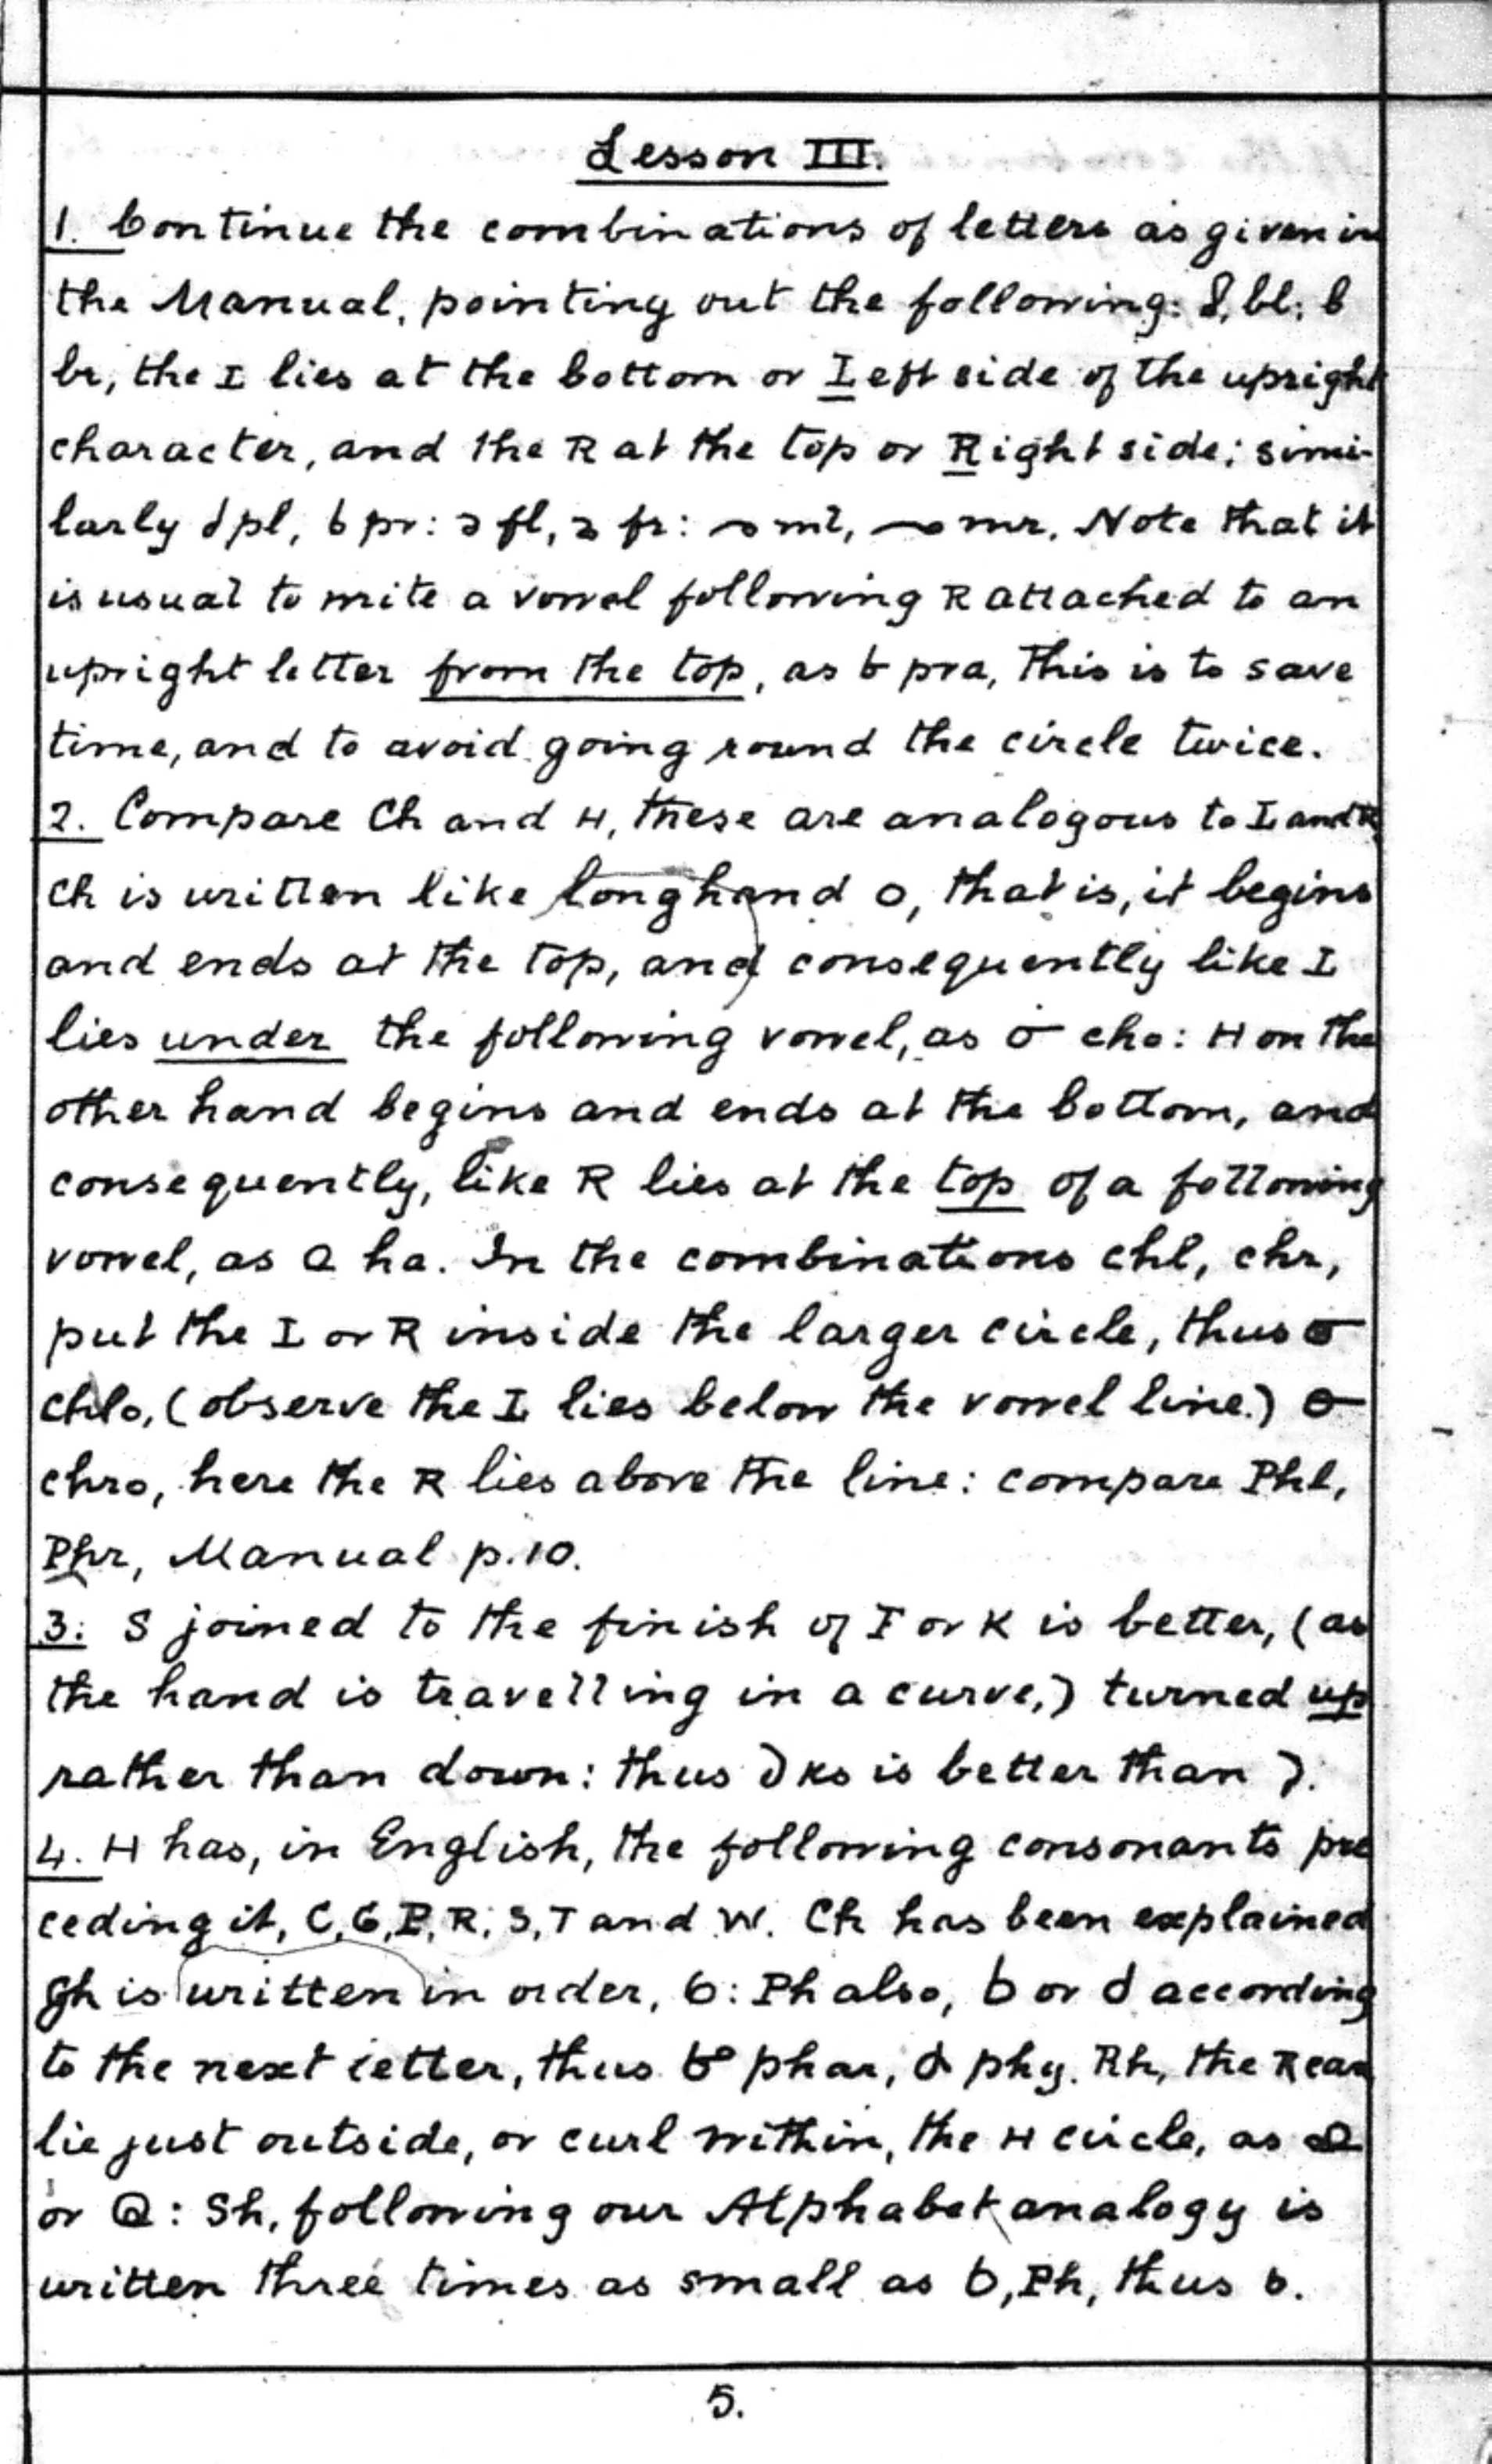 Lesson III.
1. Continue the combinations of letters as given in
the Manual, pointing out the following: bl; b
br, the L lies at the bottom or Left side of the upright
character, and the R at the top or Right side; simi-
larly pl, pr: fl, fr: ml, mr. Note that it
is usual to write a vowel following R attached to an
upright letter from the top, as pra, This is to save
time, and to avoid going round the circle twice.
2. Compare Ch and H, these are analogous to L and R
Ch is written like longhand o, that is, it begins
and ends at the top, and consequently like L
lies under the following vowel, as cho: H on the
other hand begins and ends at the bottom, and
consequently, like R lies at the top of a following
vowel, as ha. In the combinations chl, chr,
put the L or R inside the larger circle, thus
chlo, (observe the L lies below the vowel line.)
chro, here the R lies above the line: compare Phl,
Phr, Manual p.10.
3. S joined to the finish of F or K is better, (as
the hand is travelling in a curve,) turned up
rather than down: thus ks is better than
4. H has, in English, the following consonants pre
ceding it, C, G, P, R, S, T and W. Ch has been explained
Gh is written in order, 6: Ph also, b or d according
to the next letter, thus phar, phy. Rh, the R can
lie just outside, or curl within, the H circle, as
or : Sh, following our Alphabet analogy is
written three times as small as b, Ph, thus b.
5.